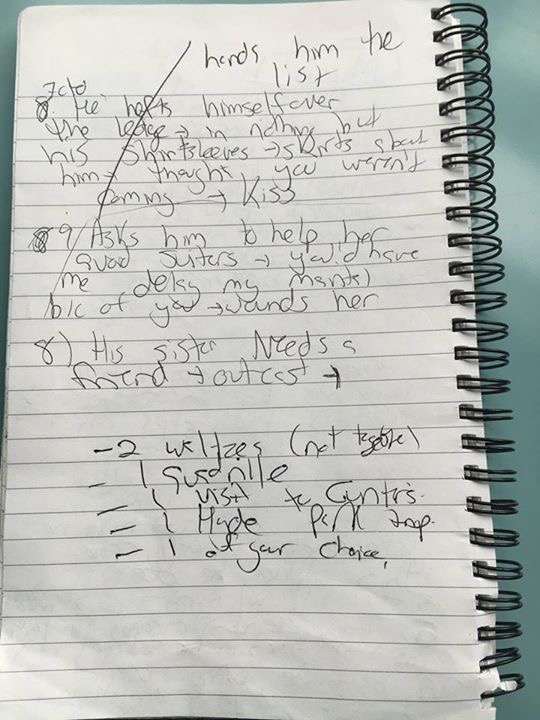 hands him the
list
8. He hefts himself over
the ledge → in nothing but
his shirtsleeves → skirts about
him → thought you weren't
coming → Kiss
9) Asks him to help her
avoid suiters → you'd have
me delay my
b/c of you → wounds her
8) His sister Needs a
friend → outcast →
- 2 waltzes (not together)
- 1 quadrille
- 1 visit to Gunter's.
- 1 Hyde Park
- 1 of your choice,